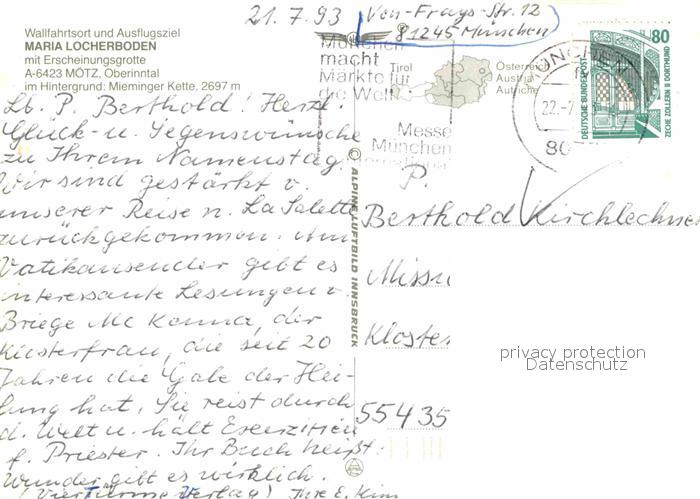 21.7.93 Ven-Frays-Str. 12
81245 München
Wallfahrtsort und Ausflugsziel
MARIA LOCHERBODEN
mit Erscheinungsgrotte
A-6423 MÖTZ, Oberinntal
im Hintergrund: Mieminger Kette, 2697 m
München
macht
Märkte für
die Welt
Messe
München
Tirol
Österreich
Austria
Autriche
MÜNCHEN
22.-7.
80
80
DEUTSCHE BUNDESPOST
ZECHE ZOLLERN II DORTMUND
Lb. P. Berthold! Herzl.
Glück- u. Segenswünsche
zu Ihrem Namenstag.
Wir sind gestärkt v.
unserer Reise n. La Salette
zurückgekommen. Am
Vatikansender gibt es
interessante Lesungen v.
Briege Mc Kenna, der
Klosterfrau, die seit 20
Jahren die Gabe der Hei-
lung hat. Sie reist durch
d. Welt u. hält Exerzitien
f. Priester. Ihr Buch heißt:
Wunder gibt es wirklich.
Verlag) Ihre E.
© ALPINE LUFTBILD INNSBRUCK
P.
Berthold Kirchlechner
Kloster
55435
privacy protection
Datenschutz